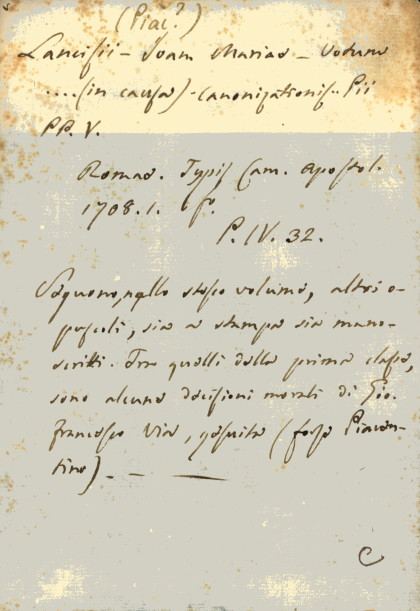 (Piac.?)
Lancisii - Joan Mariae - Votum
....(in causa) - canonizationis.. Pii
PP. V.
Romae. Typis Cam. Apostol.
1708. 1. f.º
P. IV. 32.
Seguono, nello stesso volume, altri o-
puscoli, sia a stampa sia mano-
scritti. Tra quelli della prima classe,
sono alcune decisioni morali di Gio.
Francesco Via, gesuita (forse Piacen-
tino). -
C